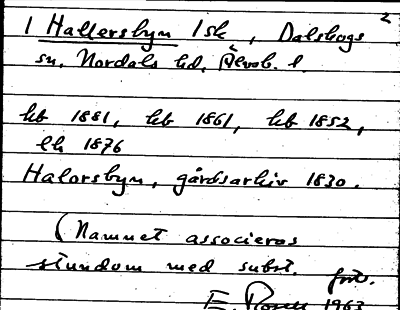 2
1 Hallersbyn 1 sk, Dalskogs
sn, Nordals hd, Älvsb. l.
kb 1881, kb 1861, kb 1852,
lh 1876
Halorsbyn, gårdsarkiv 1830.
(Namnet associeras
stundom med subst.
E. Rosell 1963